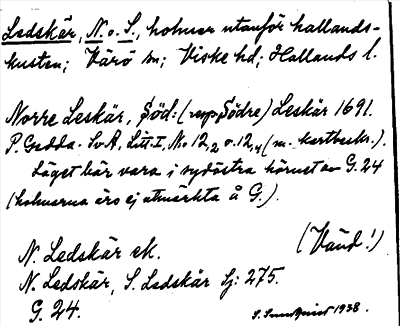 Ledskär, N. o. S., holmar utanför hallands-
kusten; Värö sn; Viske hd; Hallands l.
Norre Leskär, Söd: (resp. Södre) Leskär 1691.
P. Gedda. SvA, Litt. I, No 12,2 o. 12,4 (m. kartbeskr.).
Läget bär vara i sydöstra hörnet av G. 24
(holmarna äro ej utmärkta å G.).
(Vänd!)
N. Ledskär ek.
N. Ledskär, S. Ledskär Sj: 275.
G. 24.
1938.